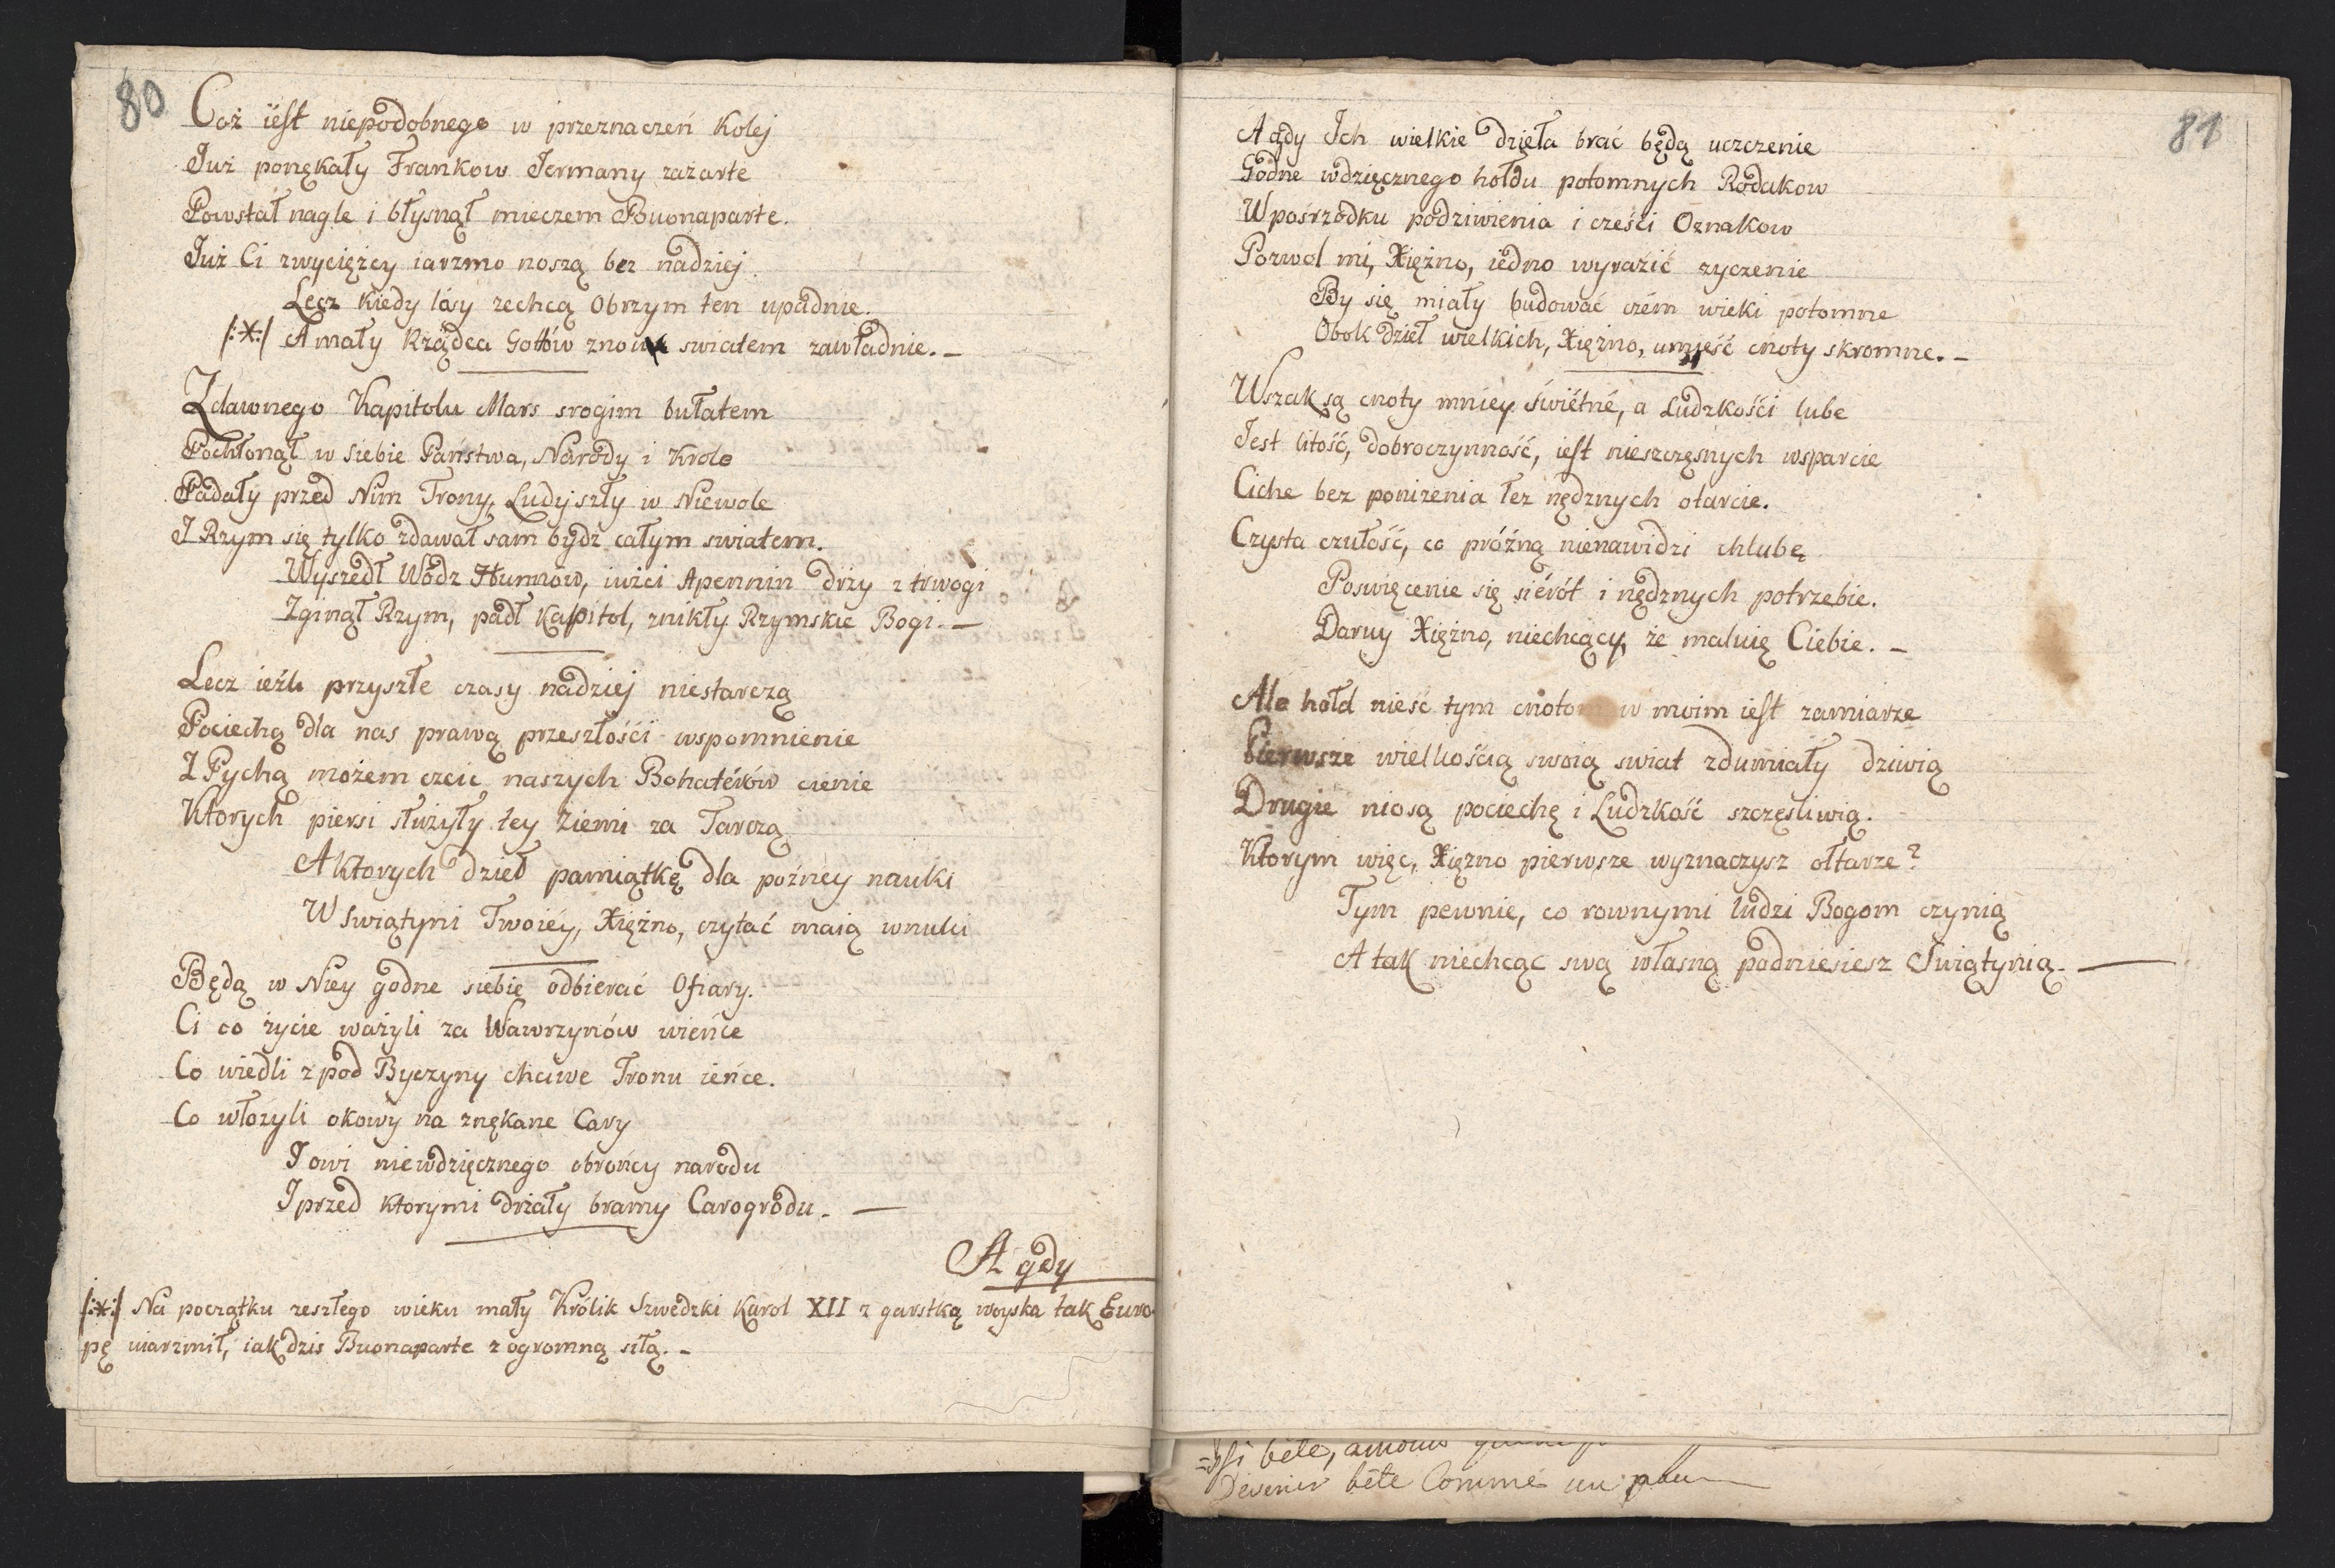 80
Coż iest niepodobnego w przeznaczeń Kolej
Juz ponękały Frankow Jermany zażarte
Powstał nagle i błysnął mieczem Bouonaparte.
Już Ci zwycięzcy iarzmo noszą bez nadziej
Lecz kiedy losy zechcą Obrzym ten upadnie.
/:*:/ A mały Rządca Gottów znow swiatem zawładnie. –
Zdawnego Kapitolu Mars srogim bułatem
Pochłonął w siebie Państwa, Narody i Krole
Padały przed Nim Trony, Ludy szły w Niewole
I Rzym się tylko zdawał sam bydź całym swiatem.
Wyszedł Wodz Hunnow, iużci Apennin drży z trwogi
Zginął Rzym, padł Kapitol, znikły Rzymskie Bogi. –
Lecz ieźli przyszłe czasy nadziej niestarczą
Pociechą dla nas prawą przeszłości wspomnienie
Z Pychą możem czcić naszych Bohatérów cienie
Ktorych piersi służyły tey Ziemi za Tarczą
A ktorych dzieł pamiątkę dla poźney nauki
W Swiątyni Twoiéy, Xiężno, czytać maią wnuki
Będą w Niey godne siebie odbierać Ofiary.
Ci co życie ważyli za Wawrzynów wieńce
Co wiedli z pod Byczyny chciwe Tronu ieńce.
Co włożyli okowy na znękane Cary
I owi niewdzięcznego obrońcy narodu
I przed ktorymi drżały bramy Carogrodu. –
A gdy
/:*:/ Na początku zeszłego wieku mały Królik Szwedzki Karol XII z garstką woyska tak Euro-
pę uiarzmił, iak dzis Buonaparte z ogromną siłą. –
81
A gdy Ich wielkie dzieła brać będą uczczenie
Godne wdzięcznego hołdu potomnych Rodakow
W pośrzodku podziwienia i cześci Oznakow
Pozwol mi, Xiężno, iedno wyrazić zyczenie
By się miały budować czém wieki potomne
Obok dzieł wielkich, Xiężno, umieść cnoty skromne. –
Wszak są cnoty mniey świetné, a Ludzkości lube
Jest litość, dobroczynność, iest nieszczęsnych wsparcie
Ciche bez poniżenia łez nędznych otarcie.
Czysta czułość, co próżną nienawidzi chlubę
Poswięcenie się siérót i nędznych potrzebie.
Daruy Xiężno, niechcący, że maluię Ciebie. –
Ale hołd nieść tym cnotom w moim iest zamiarze
Pierwsze wielkością swoią swiat zdumiały dziwią
Drugie niosą pociechę i Ludzkość szczęsliwią.
Ktorym więc, Xiężno pierwsze wyznaczysz ołtarze?
Tym pewnie, co rownymi ludzi Bogom czynią
A tak niechcąc swą własną podniesiesz Swiątynią. –
bête,
Devenir bête Comme un